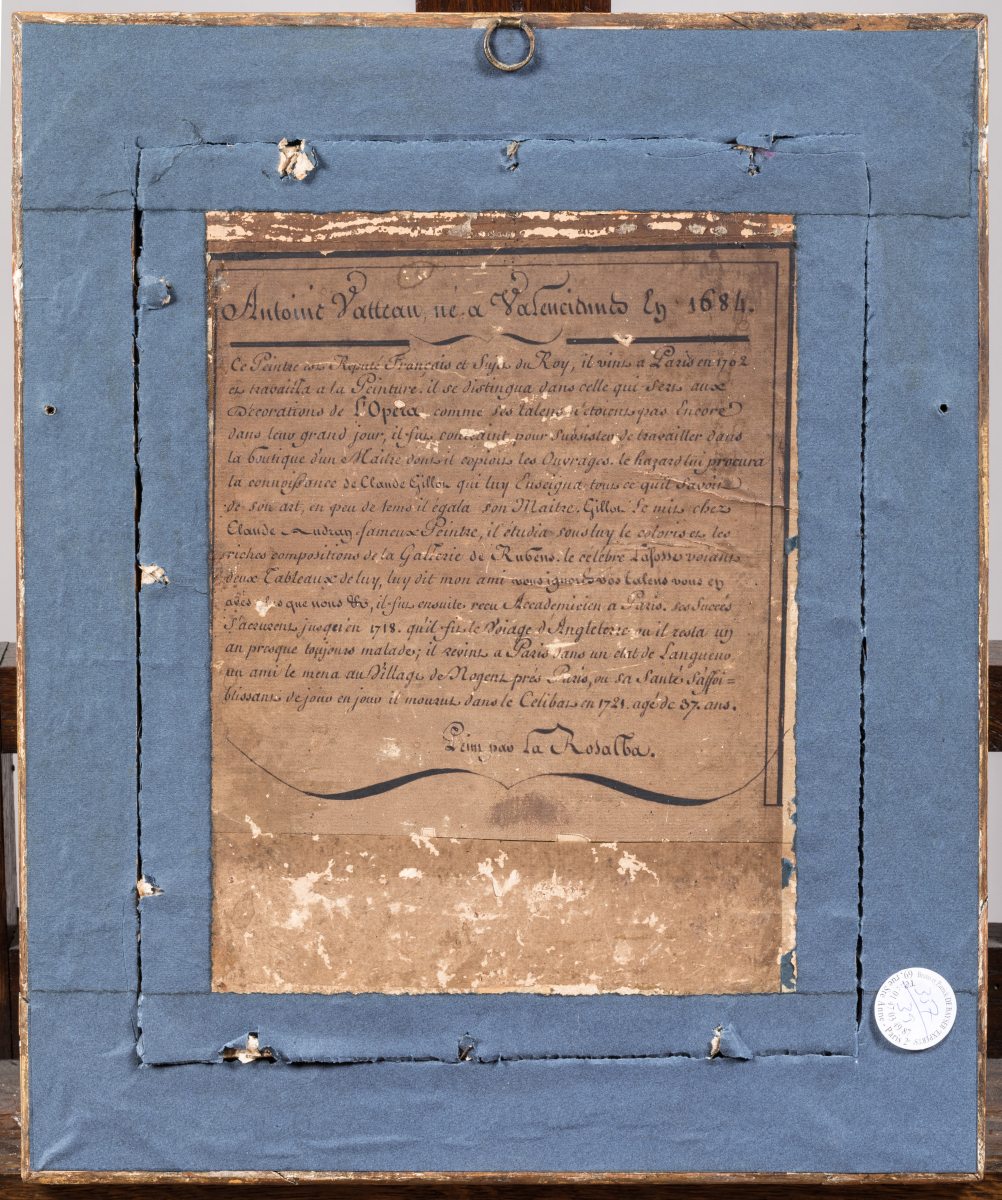 Antoine Vatteau, né, a Valenciennes En 1684.
Ce Peintre est Reputé Français et Sujet du Roy, il vint a Paris en 1702
et travailla a la Peinture. il se distingua dans celle qui sert aux
Décorations de L'Opera, comme ses talens n'étoient pas Encore
dans leur grand jour, il fut contraint pour Subsister de travailler dans
la boutique d'un Maitre dont il copioit les Ouvrages. le hazard lui procura
la connoissance de Claude Gillot qui luy Enseigna tout ce qu'il Savoit
de son art, en peu de tems il égala son Maitre. Gillot le mit chez
Claude Audran fameux Peintre, il étudia sous luy le coloris et les
riches compositions de la Gallerie de Rubens. le celebre Lafosse voiant
deux Tableaux de luy, luy dit mon ami vous ignorés vos talens vous en
avés plus que nous &c, il fut ensuite recu Accademicien a Paris. ses Succés
S'acrurent jusqu'en 1718. qu'il fit le Voiage d'Angleterre ou il resta un
an presque toujours malade; il revint a Paris dans un etat de Langueur
un ami le mena au Village de Nogent prés Paris, ou sa Santé S'affoi=
blissant de jour en jour il mourut dans le Celibat en 1721. agé de 37. ans.
Peint par la Rosalba.
357
35
DE BAYSER EXPERTS
69, rue Ste Anne - Paris 2